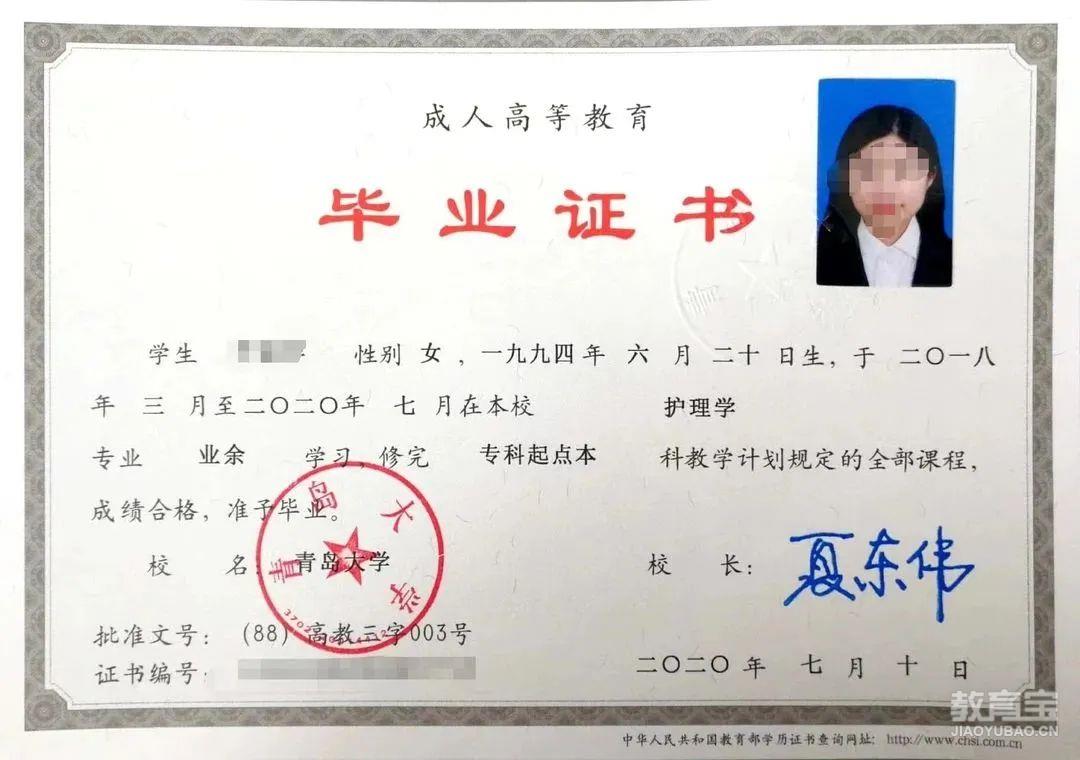 成人高等教育
毕业证书
学生 性别 女，一九九四年 六 月 二十 日生，于 二〇一八
年 三 月至二〇二〇年 七 月在本校 护理学
专业 业余 学习，修完 专科起点本 科教学计划规定的全部课程，
成绩合格，准予毕业。
校 名：青岛大学 校 长：夏东伟
青岛大学
批准文号：(88) 高教三字003号
证书编号： 二〇二〇年 七月十日
教育宝
JIAOYUBAO.CN
中华人民共和国教育部学历证书查询网址：http://www.chsi.com.cn